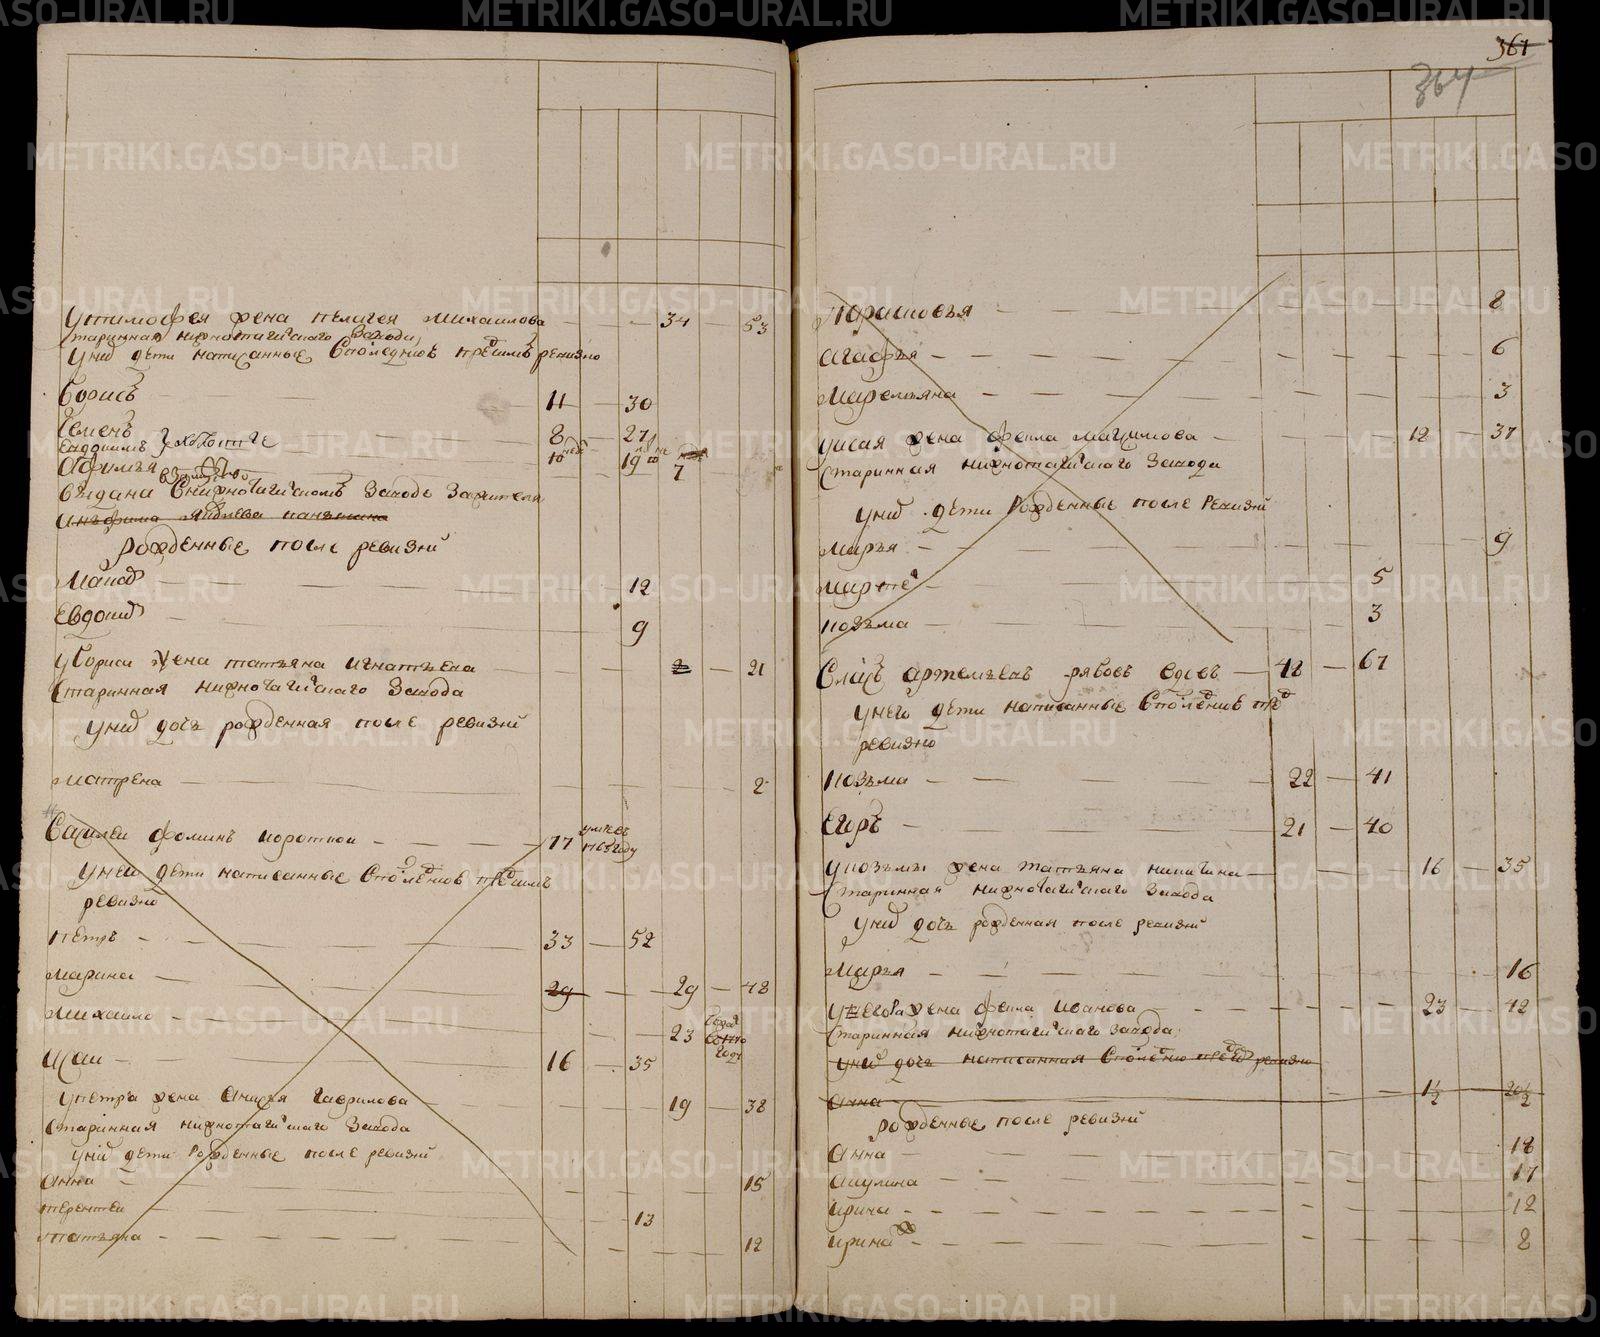 У тимофея жена пелагея михаилова 34 53
старинная нижнотагилского завода
У них дети написанные в последнюю пред симъ ревизию
Борисъ 11 30
Семенъ 8 27
Афимья 7
Выдана в нижнотагилскомъ заводе за жителя
Рожденные после ревизии
Иаковъ 12
Евдоким 9
У бориса жена татьяна игнатьева 2 21
Старинная нижнотагилскаго завода
У них дочь рожденная после ревизии
Матрена 2
Василеи фоминъ короткои 77 умре въ 1763 году
У неи дети написанные в последнюю пред симъ
ревизию
Петръ 33 52
Марина 29 29 48
Михаило 23
Исаи 16 35
У петра жена анисья гаврилова 19 38
Старинная нижнотагилскаго завода
У них дети рожденные после ревизии
Анна 15
терентеи 13
татьяна 12
361
364
Парасковья 8
Агафья 6
Маремьяна 3
У исая жена фекла максимова 18 37
Старинная нижнотагилскаго завода
У них дети рожденные после ревизии
Марья 9
Мартем 5
Козьма 3
артемьевъ рябовъ вдовъ 48 67
У него дети написанные в последнюю пред
ревизию
Козьма 22 41
Егоръ 21 40
У козьмы жена татьяна никитина 16 35
Старинная нижнотагилскаго завода
У них дочь рожденная после ревизии
Марья 16
У егора жена фекла иванова 23 42
Старинная нижнотагилскаго завода
У них дочь написанная в последнюю пред ревизию
Анна 1½ 20½
Рожденные после ревизии
Анна 18
Акулина 17
Ирина 12
Ирина 8
METRIKI.GASO-URAL.RU